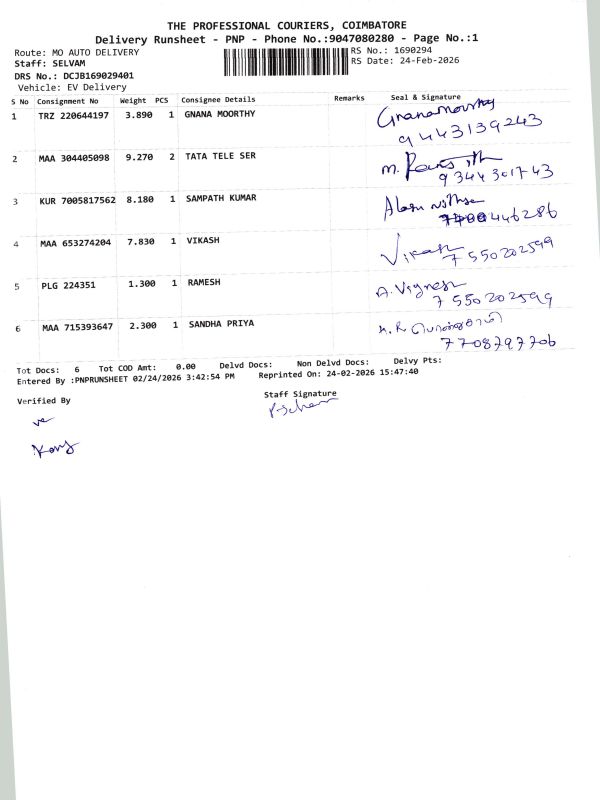 THE PROFESSIONAL COURIERS, COIMBATORE
Delivery Runsheet - PNP - Phone No.:9047080280 - Page No.:1
Route: MO AUTO DELIVERY RS No.: 1690294
Staff: SELVAM RS Date: 24-Feb-2026
DRS No.: DCJB169029401
Vehicle: EV Delivery
S No Consignment No Weight PCS Consignee Details Remarks Seal & Signature
1 TRZ 220644197 3.890 1 GNANA MOORTHY Gnanamoorthy
9443139243
2 MAA 304405098 9.270 2 TATA TELE SER M.
9344301743
3 KUR 7005817562 8.180 1 SAMPATH KUMAR
446286
4 MAA 653274204 7.830 1 VIKASH Vikash
7550202599
5 PLG 224351 1.300 1 RAMESH A. Vignesh
7550202599
6 MAA 715393647 2.300 1 SANDHA PRIYA
7708797706
Tot Docs: 6 Tot COD Amt: 0.00 Delvd Docs: Non Delvd Docs: Delvy Pts:
Entered By :PNPRUNSHEET 02/24/2026 3:42:54 PM Reprinted On: 24-02-2026 15:47:40
Verified By Staff Signature